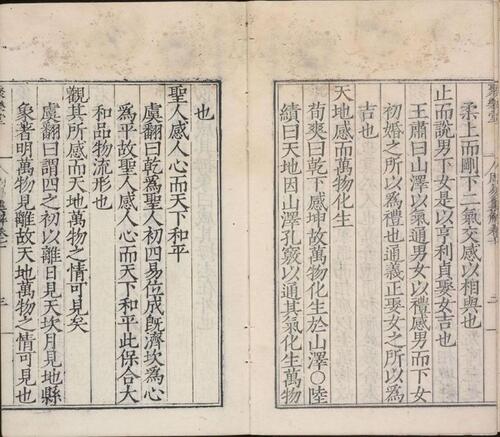 柔上而剛下二氣交感以相與也
止而說男下女是以亨利貞娶女吉也
王肅曰山澤以氣通男女以禮感男而下女
初婚之所以爲禮也通義正娶女之所以爲
吉也
天地感而萬物化生
荀爽曰乾下感坤故萬物化生於山澤○陸
績曰天地因山澤孔竅以通其氣化生萬物
也
聖人感人心而天下和平
虞翻曰乾爲聖人初四易位成旣濟坎爲心
爲平故聖人感人心而天下和平此保合大
和品物流形也
觀其所感而天地萬物之情可見矣
虞翻曰謂四之初以離日見天坎月見地縣
象著明萬物見離故天地萬物之情可見也